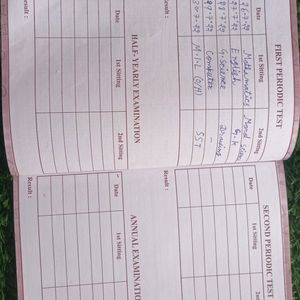 FIRST PERIODIC TEST
Date 1st Sitting 2nd Sitting
Mathematics Moral
English G.K
G. Science Drawing
Computer -
M.I.L SST
Result :
HALF- YEARLY EXAMINATION
Date 1st Sitting 2nd Sitting
Result :
SECOND PERIODIC TEST
Date 1st Sitting 2nd
Result :
ANNUAL EXAMINATION
Date 1st Sitting
Result :